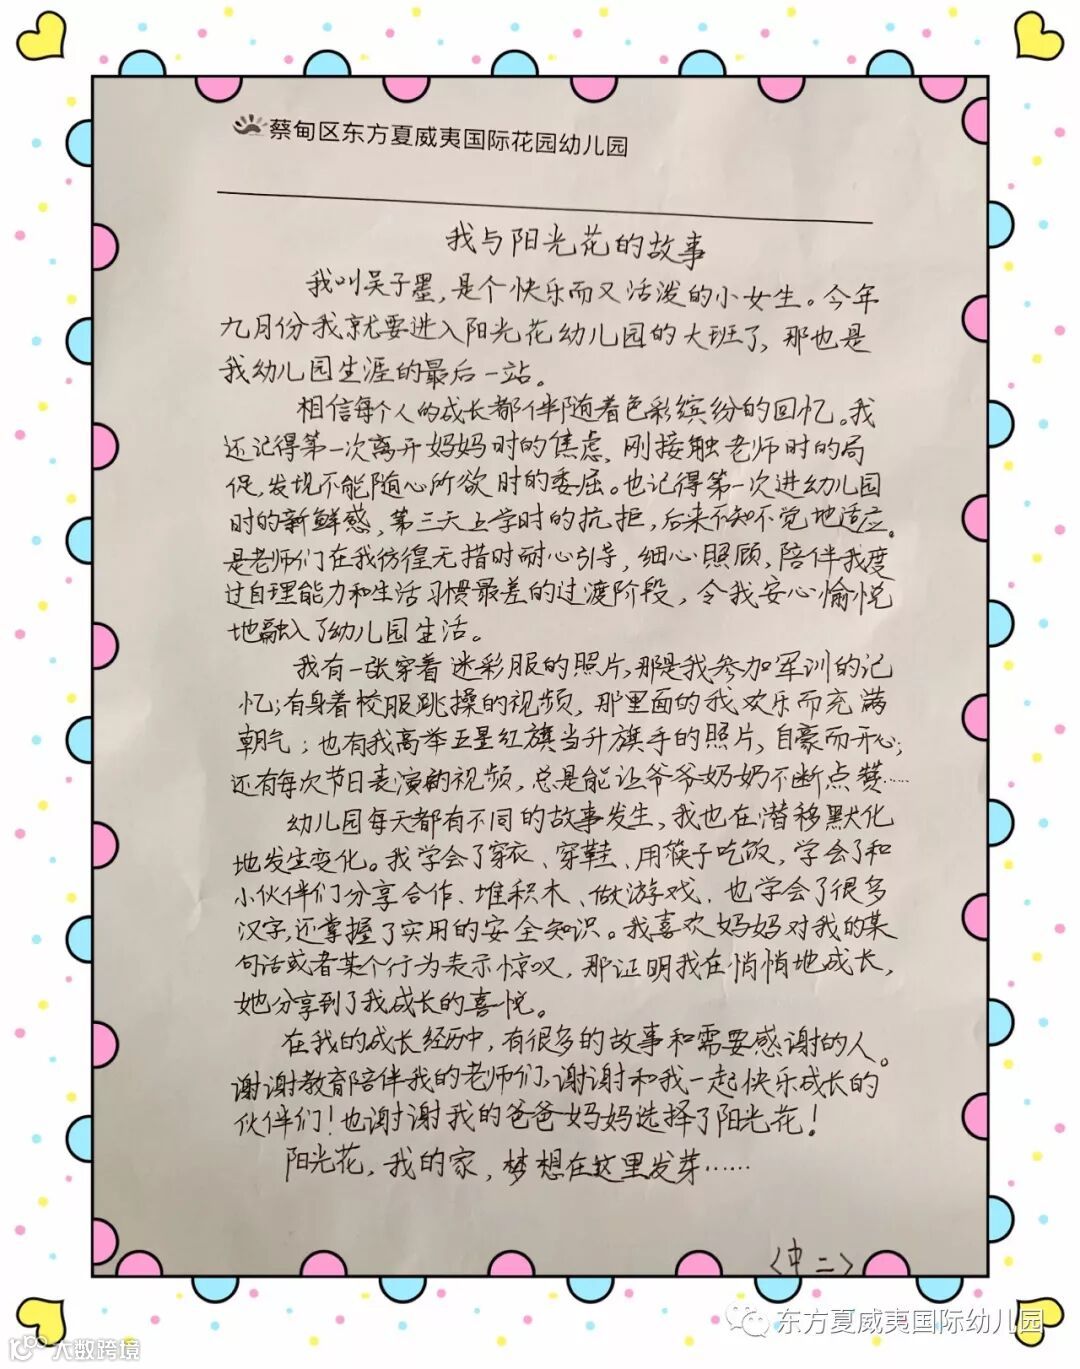 蔡甸区东方夏威夷国际花园幼儿园
我与阳光花的故事
我叫吴子墨,是个快乐而又活泼的小女生。今年
九月份我就要进入阳光花幼儿园的大班了,那也是
我幼儿园生涯的最后一站。
相信每个人的成长都伴随着色彩缤纷的回忆。我
还记得第一次离开妈妈时的焦虑、刚接触老师时的局
促,发现不能随心所欲时的委屈。也记得第一次进幼儿园
时的新鲜感,第三天上学时的抗拒,后来不知不觉地适应。
是老师们在我彷徨无措时耐心引导,细心照顾,陪伴我度
过自理能力和生活习惯最差的过渡阶段,令我安心愉悦
地融入了幼儿园生活。
我有一张穿着迷彩服的照片,那是我参加军训的记
忆;有身着校服跳操的视频,那里面的我欢乐而充满
朝气;也有我高举五星红旗当升旗手的照片,自豪而开心;
还有每次节日表演的视频,总是能让爷爷奶奶不断点赞……
幼儿园每天都有不同的故事发生,我也在潜移默化
地发生变化。我学会了穿衣、穿鞋、用筷子吃饭,学会了和
小伙伴们分享合作、堆积木、做游戏,也学会了很多
汉字,还掌握了实用的安全知识。我喜欢妈妈对我的某
句话或者某个行为表示惊叹,那证明我在悄悄地成长,
她分享到了我成长的喜悦。
在我的成长经历中,有很多的故事和需要感谢的人。
谢谢教育陪伴我的老师们,谢谢和我一起快乐成长的
伙伴们!也谢谢我的爸爸妈妈选择了阳光花!
阳光花,我的家,梦想在这里发芽……
<中二>
东方夏威夷国际幼儿园
大数跨境